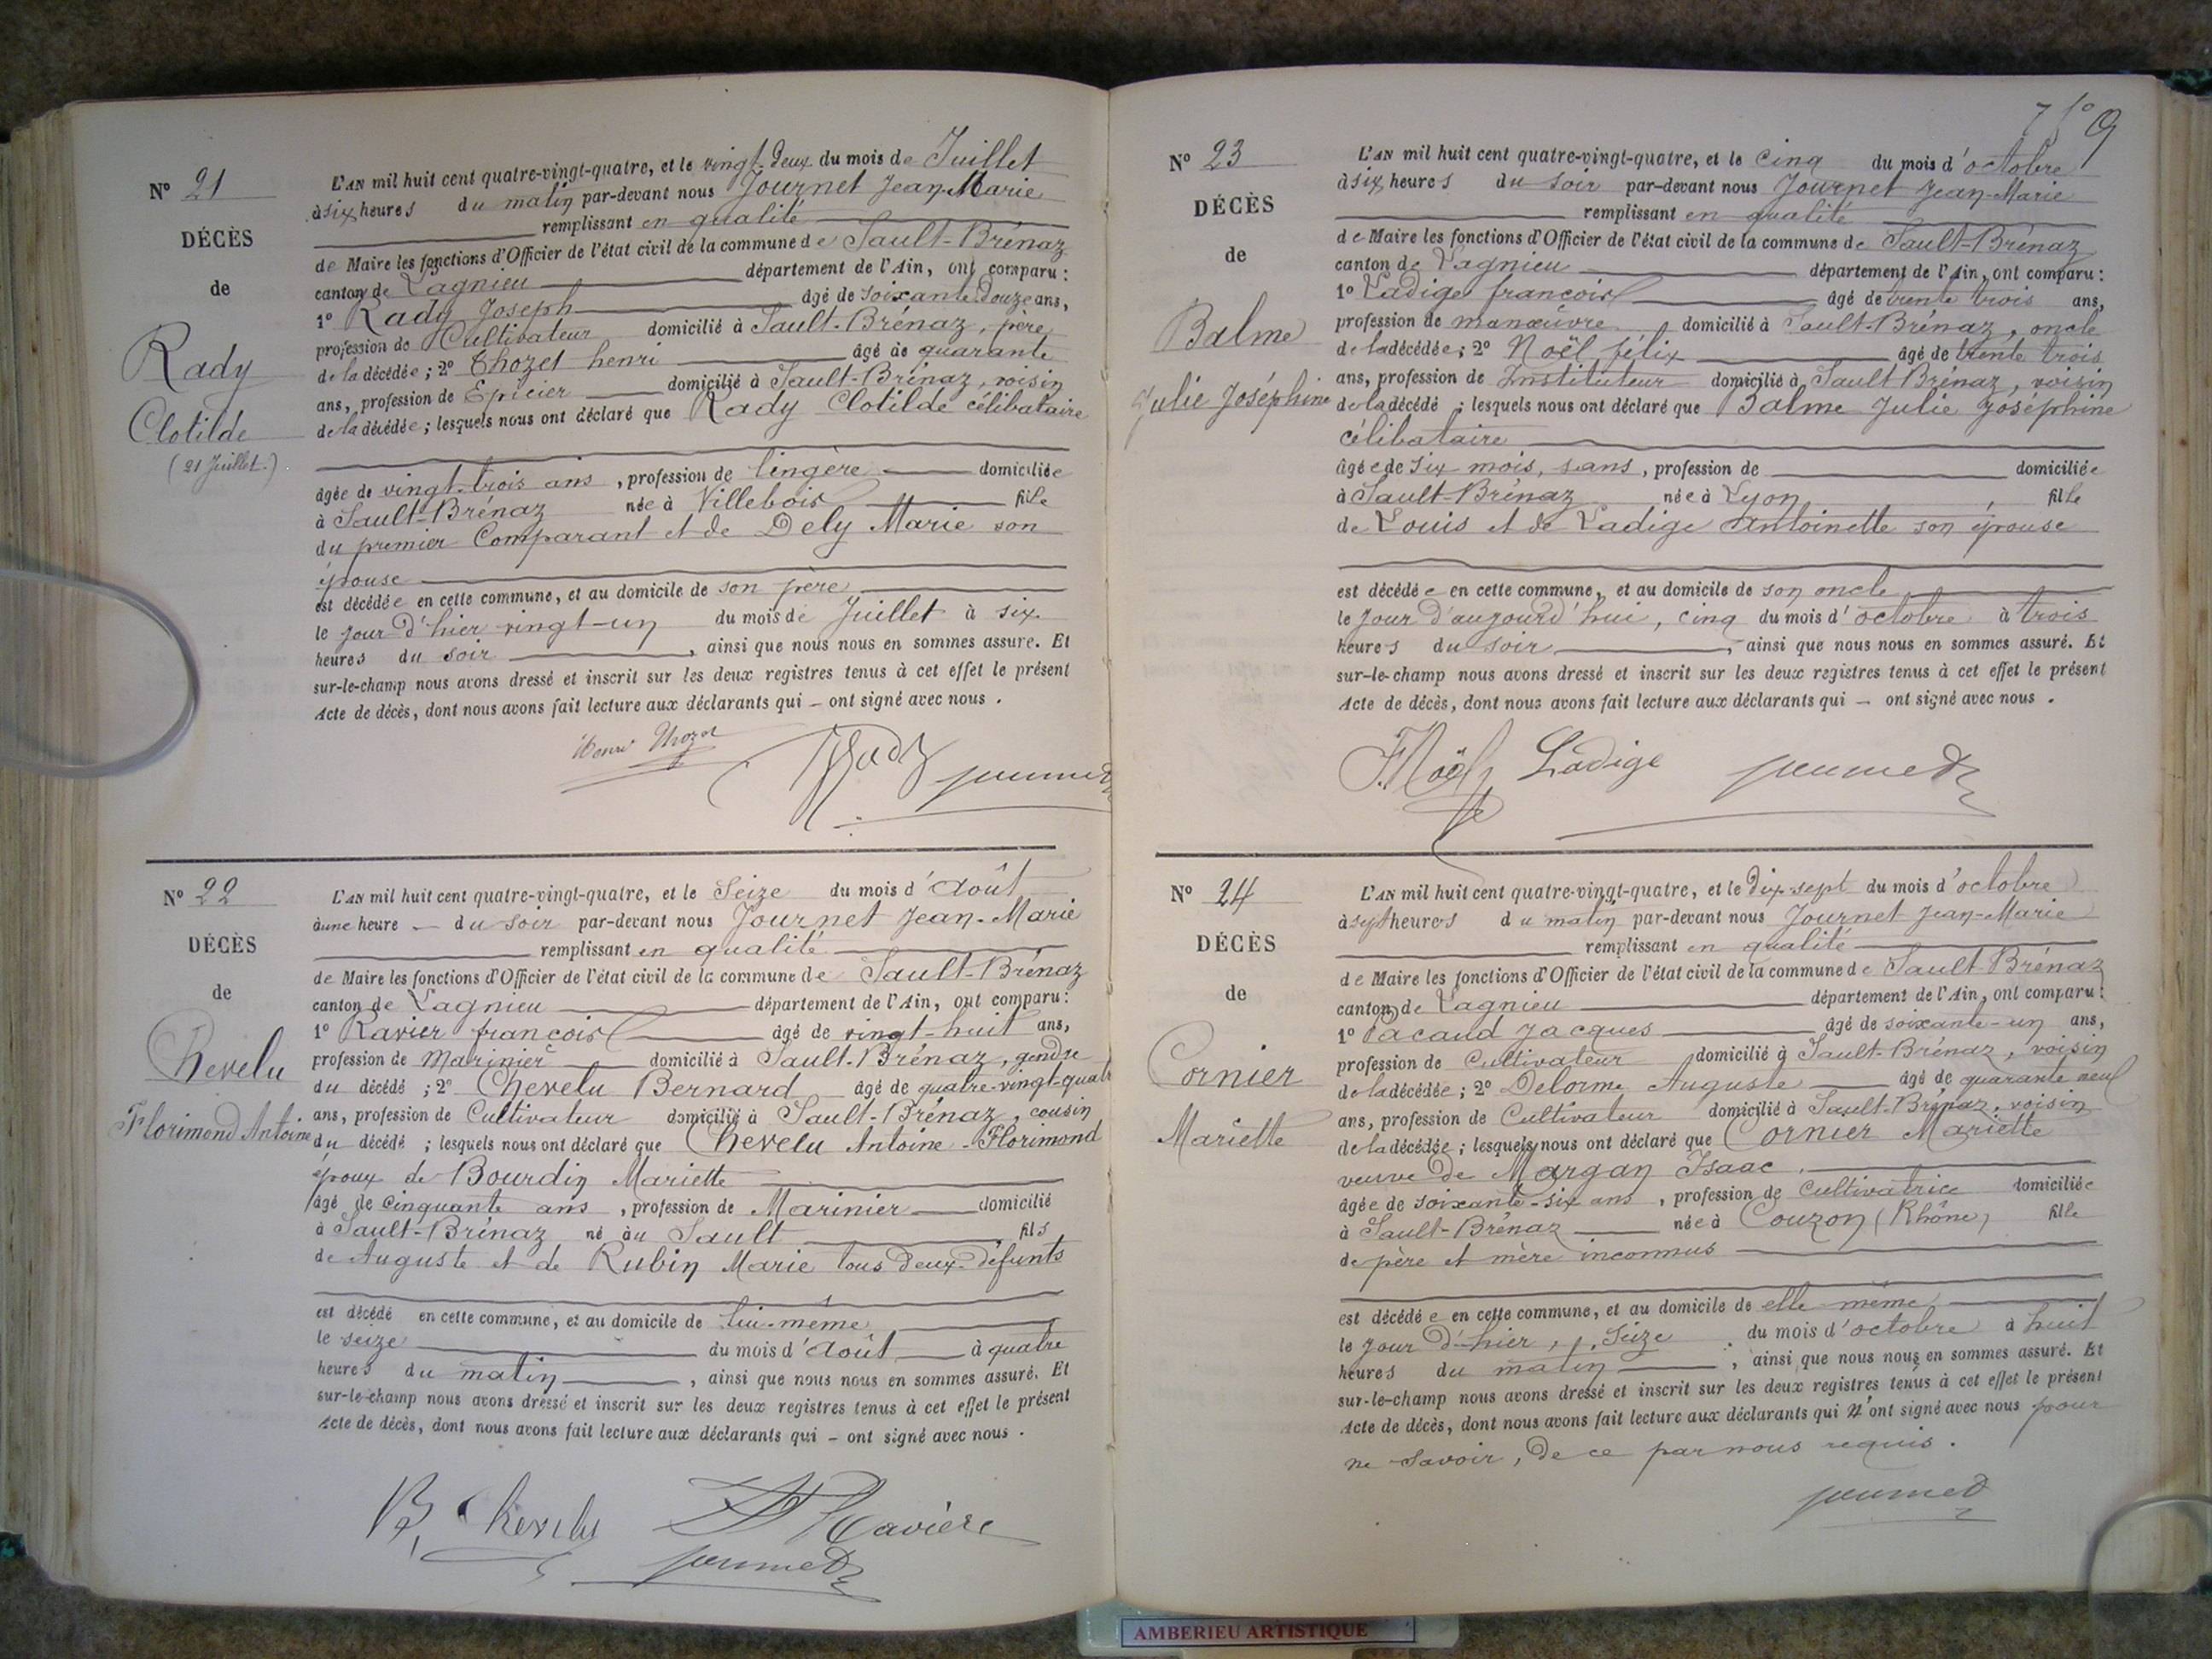 Nº 21
DÉCÈS
de
Rady
Clotilde
(21 Juillet.)
L'AN mil huit cent quatre-vingt-quatre, et le vingt-deux du mois de Juillet
à six heures du matin par-devant nous Journet Jean-Marie
remplissant en qualité
de Maire les fonctions d'Officier de l'état civil de la commune de Sault-Brénaz
canton de Lagnieu département de l'Ain, ont comparu :
1º Rady Joseph âgé de soixante-douze ans,
profession de Cultivateur domicilié à Sault-Brénaz, père
de la décédée ; 2º Thozet henri âgé de quarante
ans, profession de Epicier domicilié à Sault-Brénaz, voisin
de la décédée ; lesquels nous ont déclaré que Rady Clotilde célibataire
âgée de vingt-trois ans, profession de lingère domiciliée
à Sault-Brénaz née à Villebois fille
du premier Comparant et de Dely Marie son
épouse
est décédée en cette commune, et au domicile de son père
le jour d'hier vingt-un du mois de Juillet à six
heures du soir, ainsi que nous nous en sommes assuré. Et
sur-le-champ nous avons dressé et inscrit sur les deux registres tenus à cet effet le présent
Acte de décès, dont nous avons fait lecture aux déclarants qui - ont signé avec nous.
Henri Thozet Rady Journet
Nº 22
DÉCÈS
de
Chevelu
Florimond Antoine
L'AN mil huit cent quatre-vingt-quatre, et le Seize du mois d'Août
à une heure - du soir par-devant nous Journet Jean-Marie
remplissant en qualité
de Maire les fonctions d'Officier de l'état civil de la commune de Sault-Brénaz
canton de Lagnieu département de l'Ain, ont comparu :
1º Ravier françois âgé de vingt-huit ans,
profession de Marinier domicilié à Sault-Brénaz, gendre
du décédé ; 2º Chevelu Bernard âgé de quatre-vingt-quatre
ans, profession de Cultivateur domicilié à Sault-Brénaz, cousin
du décédé ; lesquels nous ont déclaré que Chevelu Antoine-Florimond
époux de Bourdin Mariette
âgé de cinquante ans, profession de Marinier domicilié
à Sault-Brénaz né au Sault fils
de Auguste et de Rubin Marie tous deux défunts
est décédé en cette commune, et au domicile de lui-même
le seize du mois d'Août à quatre
heures du matin, ainsi que nous nous en sommes assuré. Et
sur-le-champ nous avons dressé et inscrit sur les deux registres tenus à cet effet le présent
Acte de décès, dont nous avons fait lecture aux déclarants qui - ont signé avec nous.
B. Chevelu Ravière
Journet
Nº 23
DÉCÈS
de
Balme
Julie Joséphine
L'AN mil huit cent quatre-vingt-quatre, et le cinq du mois d'octobre
à six heures du soir par-devant nous Journet Jean-Marie
remplissant en qualité
de Maire les fonctions d'Officier de l'état civil de la commune de Sault-Brénaz
canton de Lagnieu département de l'Ain, ont comparu :
1º Ladige françois âgé de trente trois ans,
profession de manœuvre domicilié à Sault-Brénaz, oncle
de la décédée ; 2º Noël félix âgé de trente trois
ans, profession de Instituteur domicilié à Sault-Brénaz, voisin
de la décédé ; lesquels nous ont déclaré que Balme Julie Joséphine
célibataire
âgée de six mois, sans, profession de domiciliée
à Sault-Brénaz née à Lyon, fille
de Louis et de Ladige Antoinette son épouse
est décédée en cette commune, et au domicile de son oncle
le jour d'aujourd'hui, cinq du mois d'octobre à trois
heures du soir, ainsi que nous nous en sommes assuré. Et
sur-le-champ nous avons dressé et inscrit sur les deux registres tenus à cet effet le présent
Acte de décès, dont nous avons fait lecture aux déclarants qui - ont signé avec nous.
F. Noël Ladige Journet
Nº 24
DÉCÈS
de
Cornier
Mariette
L'AN mil huit cent quatre-vingt-quatre, et le dix-sept du mois d'octobre
à sept heures du matin par-devant nous Journet Jean-Marie
remplissant en qualité
de Maire les fonctions d'Officier de l'état civil de la commune de Sault-Brénaz
canton de Lagnieu département de l'Ain, ont comparu :
1º Pacaud Jacques âgé de soixante-un ans,
profession de Cultivateur domicilié à Sault-Brénaz, voisin
de la décédée ; 2º Delorme Auguste âgé de quarante neuf
ans, profession de Cultivateur domicilié à Sault-Brénaz, voisin
de la décédée ; lesquels nous ont déclaré que Cornier Mariette
veuve de Margan Isaac.
âgée de soixante-six ans, profession de Cultivatrice domiciliée
à Sault-Brénaz née à Couzon (Rhône) fille
de père et mère inconnus
est décédée en cette commune, et au domicile de elle même
le jour d'hier, seize du mois d'octobre à huit
heures du matin, ainsi que nous nous en sommes assuré. Et
sur-le-champ nous avons dressé et inscrit sur les deux registres tenus à cet effet le présent
Acte de décès, dont nous avons fait lecture aux déclarants qui n'ont signé avec nous pour
ne savoir, de ce par nous requis.
Journet
AMBERIEU ARTISTIQUE